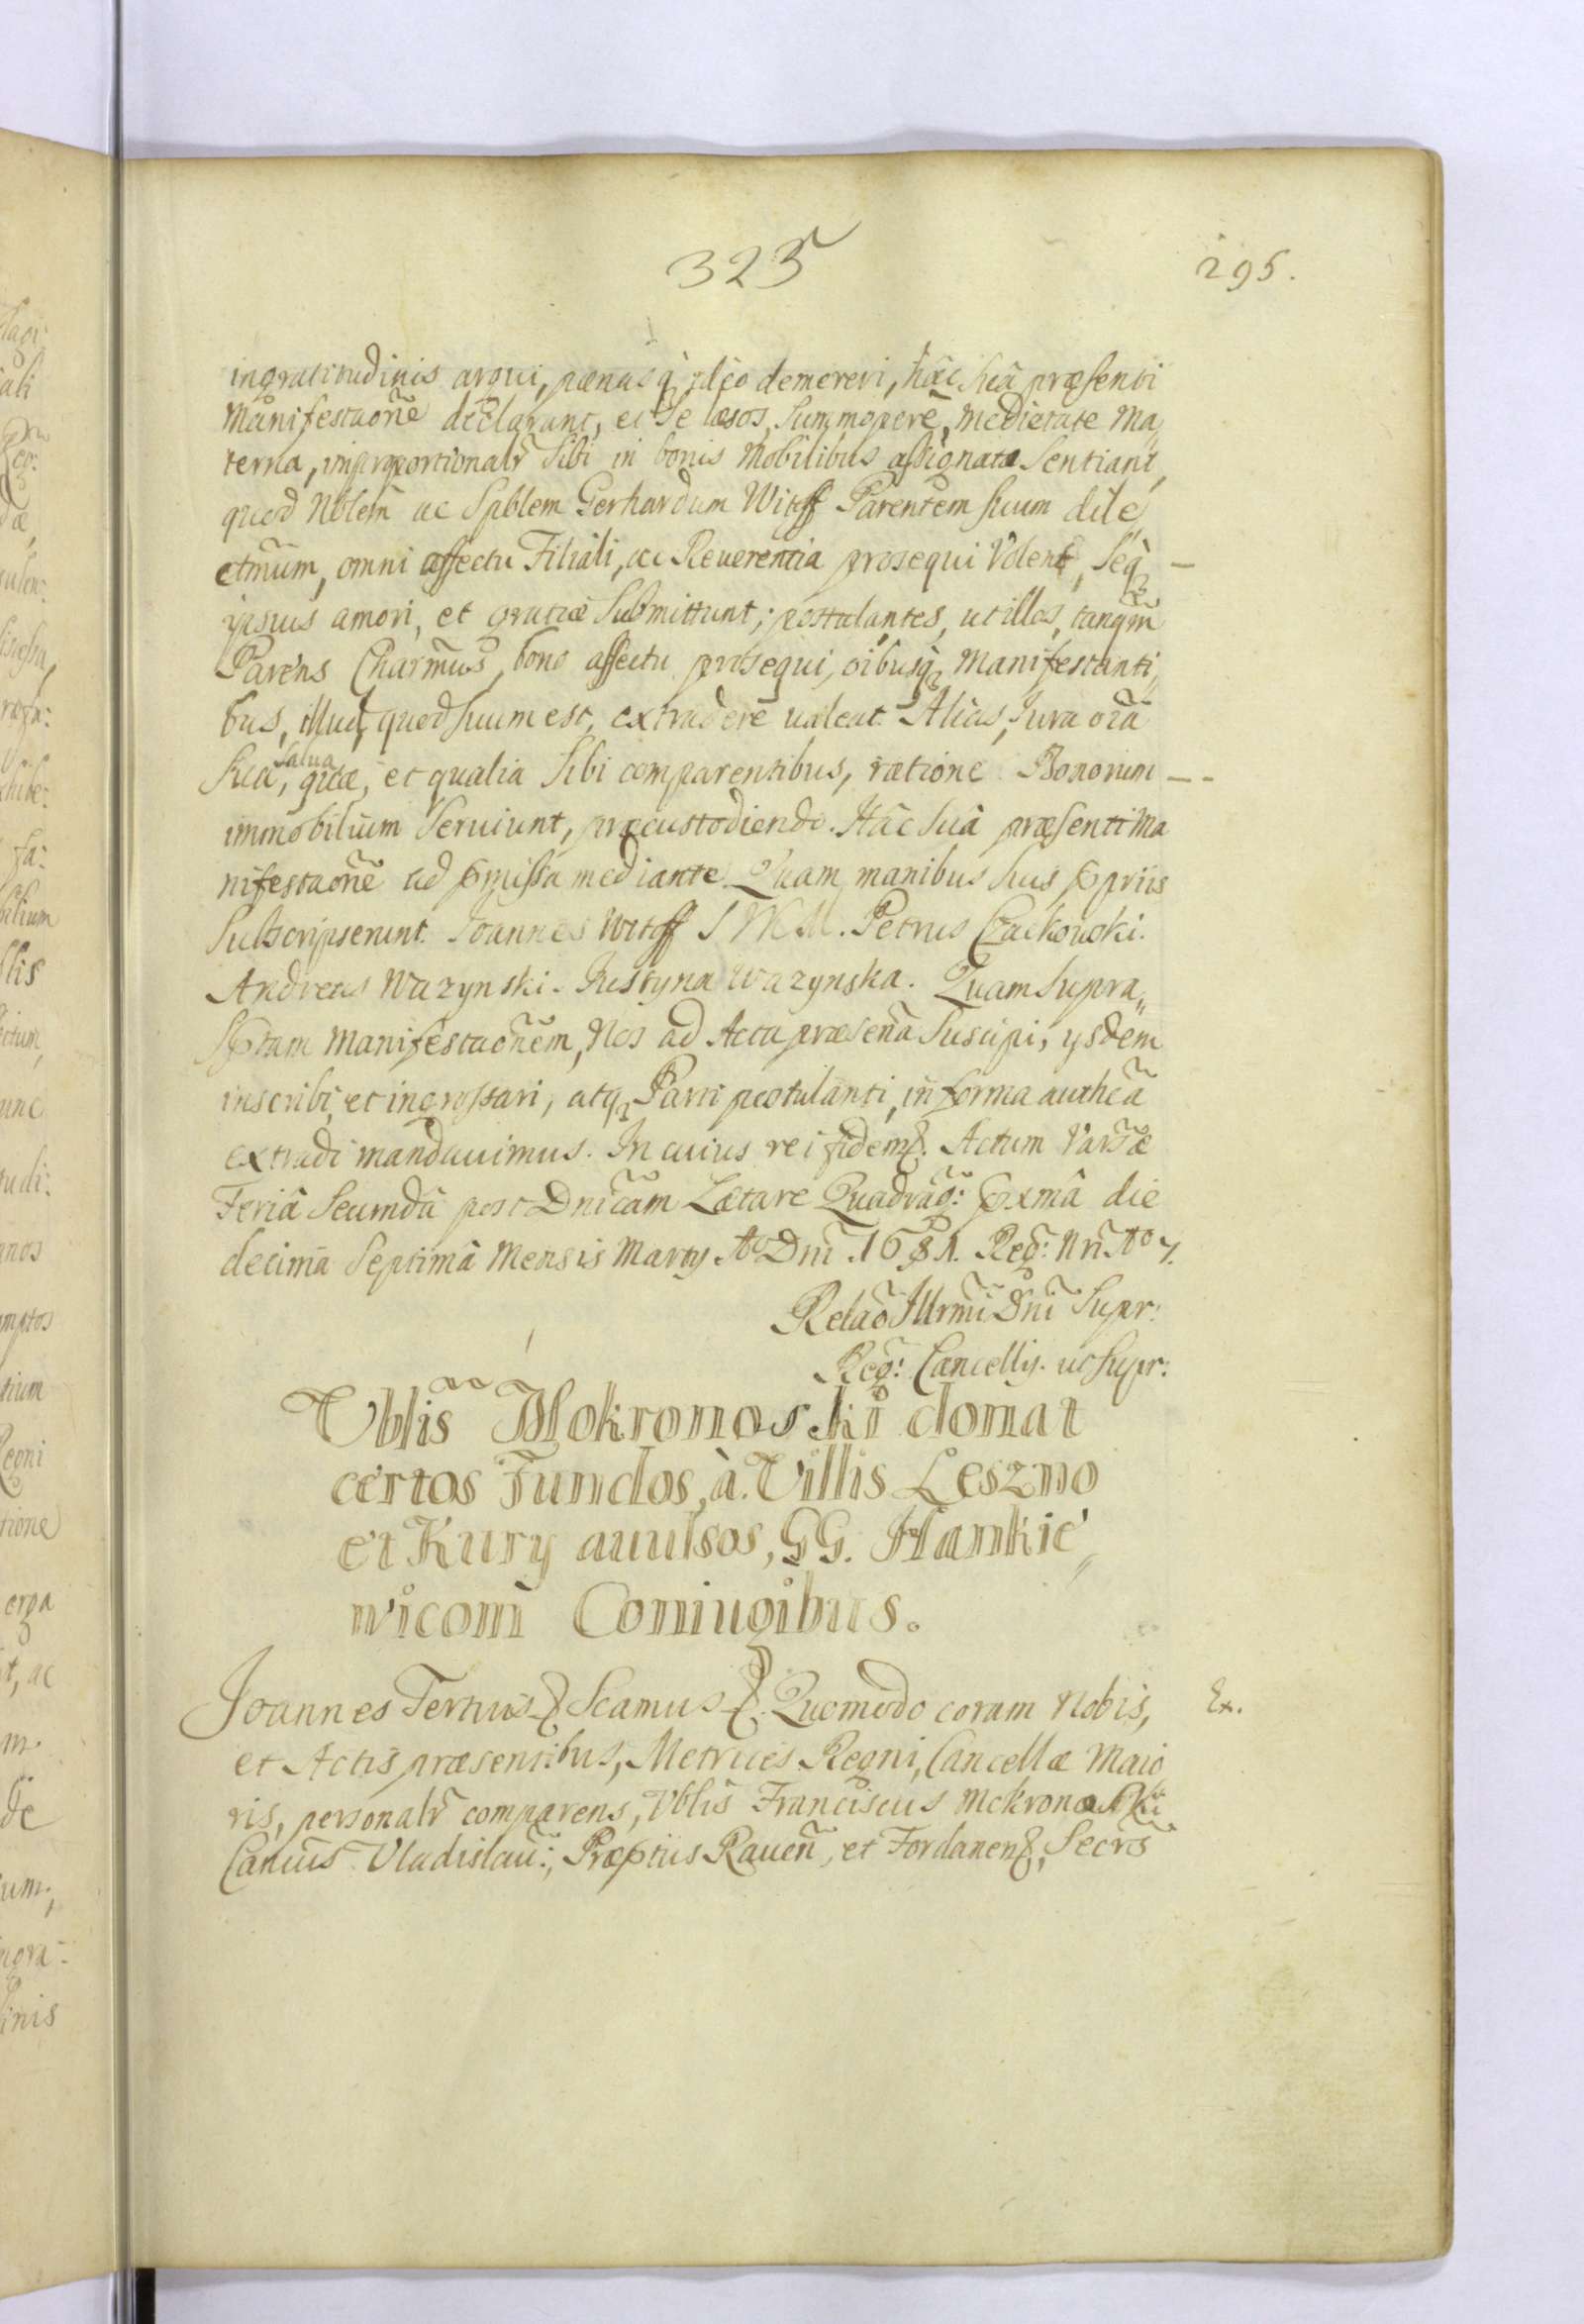 325
295.
ingratitudinis argui, pœnasq₃ ideo demereri, hâc suâ præsenti
Manifestaoñe declarant, et se læsos, summopere, medietate Ma„
terna, improportionalr̃ sibi in bonis Mobilibus assignata sentiant,
quod Nblem̃ ac Spblem Gerhardum Witoff Parentem suum dile„
ctm̃um, omni affectu Filiali, ac Reuerentia prosequi Volent, seq₃ —
ipsius amori, et gratiæ submittunt; postulantes, ut illos, tanqm̃
Parens Charm̃us, bono affectu prosequi, oĩbusq₃ Manifestanti„
bus, illud, quod suum est, extradere ualeat. Alias, Iura oĩa
sua, salua, quæ, et qualia sibi comparentibus, ratione Bonorum — -
immobilium seruiunt, præcustodiendo. Hâc suâ præsenti Ma
nifestaoñe ad pmissa mediante. Quam manibus suis ppriis
subscripserunt. Ioannes Witoff S W M. Petrus Czackowski.
Andreas Wazynski. Iustyna Wazynska. Quam supra„
sptam Manifestaonẽm, Nos ad Acta præseña suscipi, ysdem
inscribi, et ingrossari, atq₃ Parti postulanti, in forma authẽa
extradi mandauimus. In cuius rei fidem &. Actum Varsæ
Feriâ secundâ post Dnic̃am Lætare Quadrag̃: pxmâ die
decima septimâ Mensis Marty A° Dni 1681. Reg: Nri A° 7.
Relaõ Illrm̃i Dni supr:
Reg: Cancellij. ut supr:
Vblis̃ Mokronoski donat
certos Fundos, à Villis Leszno
et Kury auulsos, GG. Hankie„
wicom̃ Coniugibus.
Ioannes Tertius & Scamus & Quomodo coram Nobis,
Ex.
et Actis præsentibus, Metrices Regni, Cancellæ Maio
ris, personalr̃ comparens, Vblis̃ Franciscus Mokronoski
Canc̃us Vladislau:, Præptus Raueñ, et Fordanen &, Secrs̃